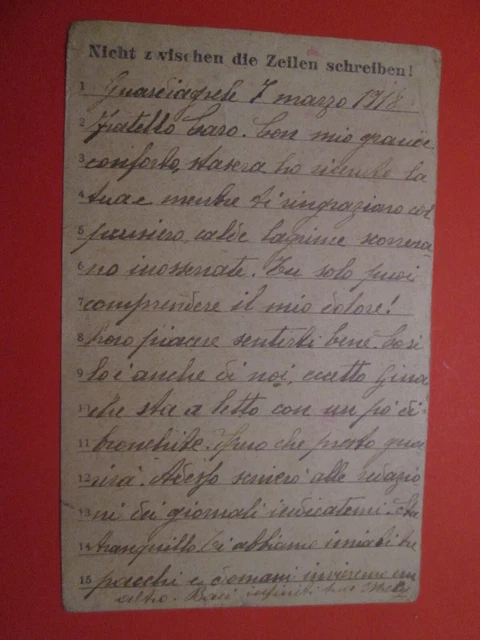 Nicht zwischen die Zeilen schreiben!
1 Guardiagrele 7 marzo 1918
2 Fratello Caro. Con mio grande
3 conforto, stasera ho ricevuto la
4 tua e mentre ti ringraziavo col
5 pensiero, calde lagrime scorreva
6 no inosservate. Tu solo puoi
7 comprendere il mio dolore!
8 Provo piacere sentirti bene. Così
9 lo è anche di noi, eccetto Gina
10 che sta a letto con un pò di
11 bronchite. Spero che presto guar
12 irà. Adesso scriverò alle redazio
13 ni dei giornali indicatemi. Sta
14 tranquillo, ti abbiamo inviati tre
15 pacchi e domani invieremo un
altro. Baci infiniti tua